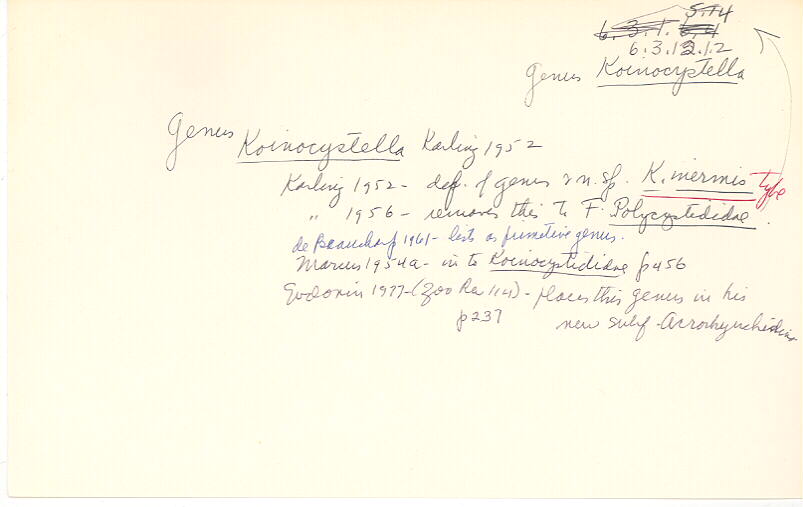 5.14
6.3.1.
6.3.12.1.2
Genus Koinocystella
Genus
Koinocystella Karling 1952
Karling 1952 - def. of genus & n. sp. K. inermis type
" 1956 - removes this to F. Polycystididae.
de Beauchamp 1961 - lists as primitive genus.
Marcus 1954a - in to Koinocystididae p 456
Evdonin 1977 - (Zoo Rec 114) - places this genus in his
p 237 new subf - Acrorhynchidinae